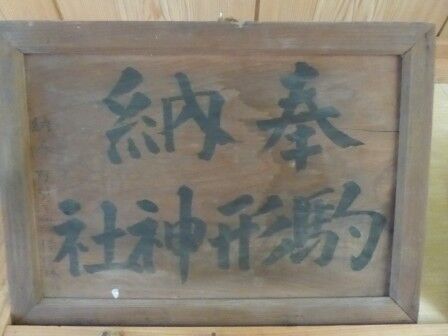 奉納
駒形神社